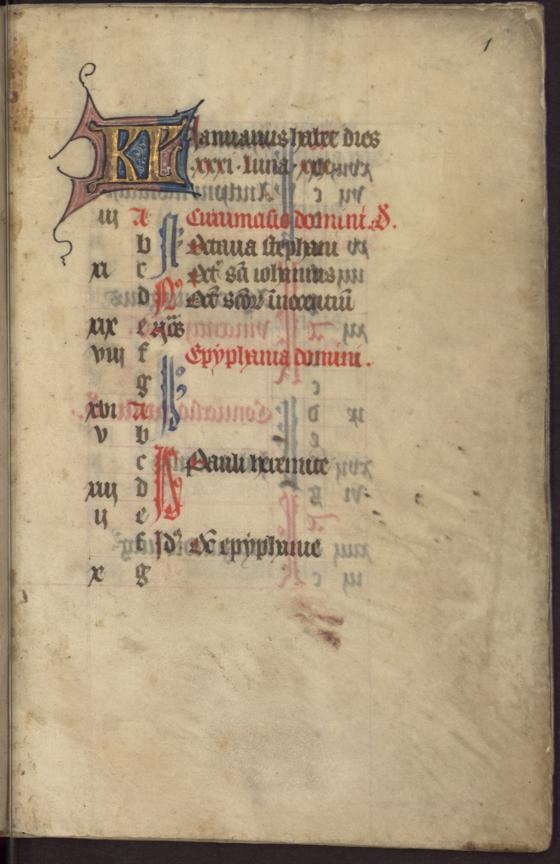 1
KL Januarius habet dies
.xxxi. luna. xxx.
iii A Circumcisio domini. D.
b N Octava stephani
xi c Oct' sci iohannis
d N' Oct' scor' innocentiu
xix e N'as
viii f Epyphania domini.
g
xvi A
v b
c Pauli heremite
xiii d
ii e
f Id' Oct' epyphanie
x g